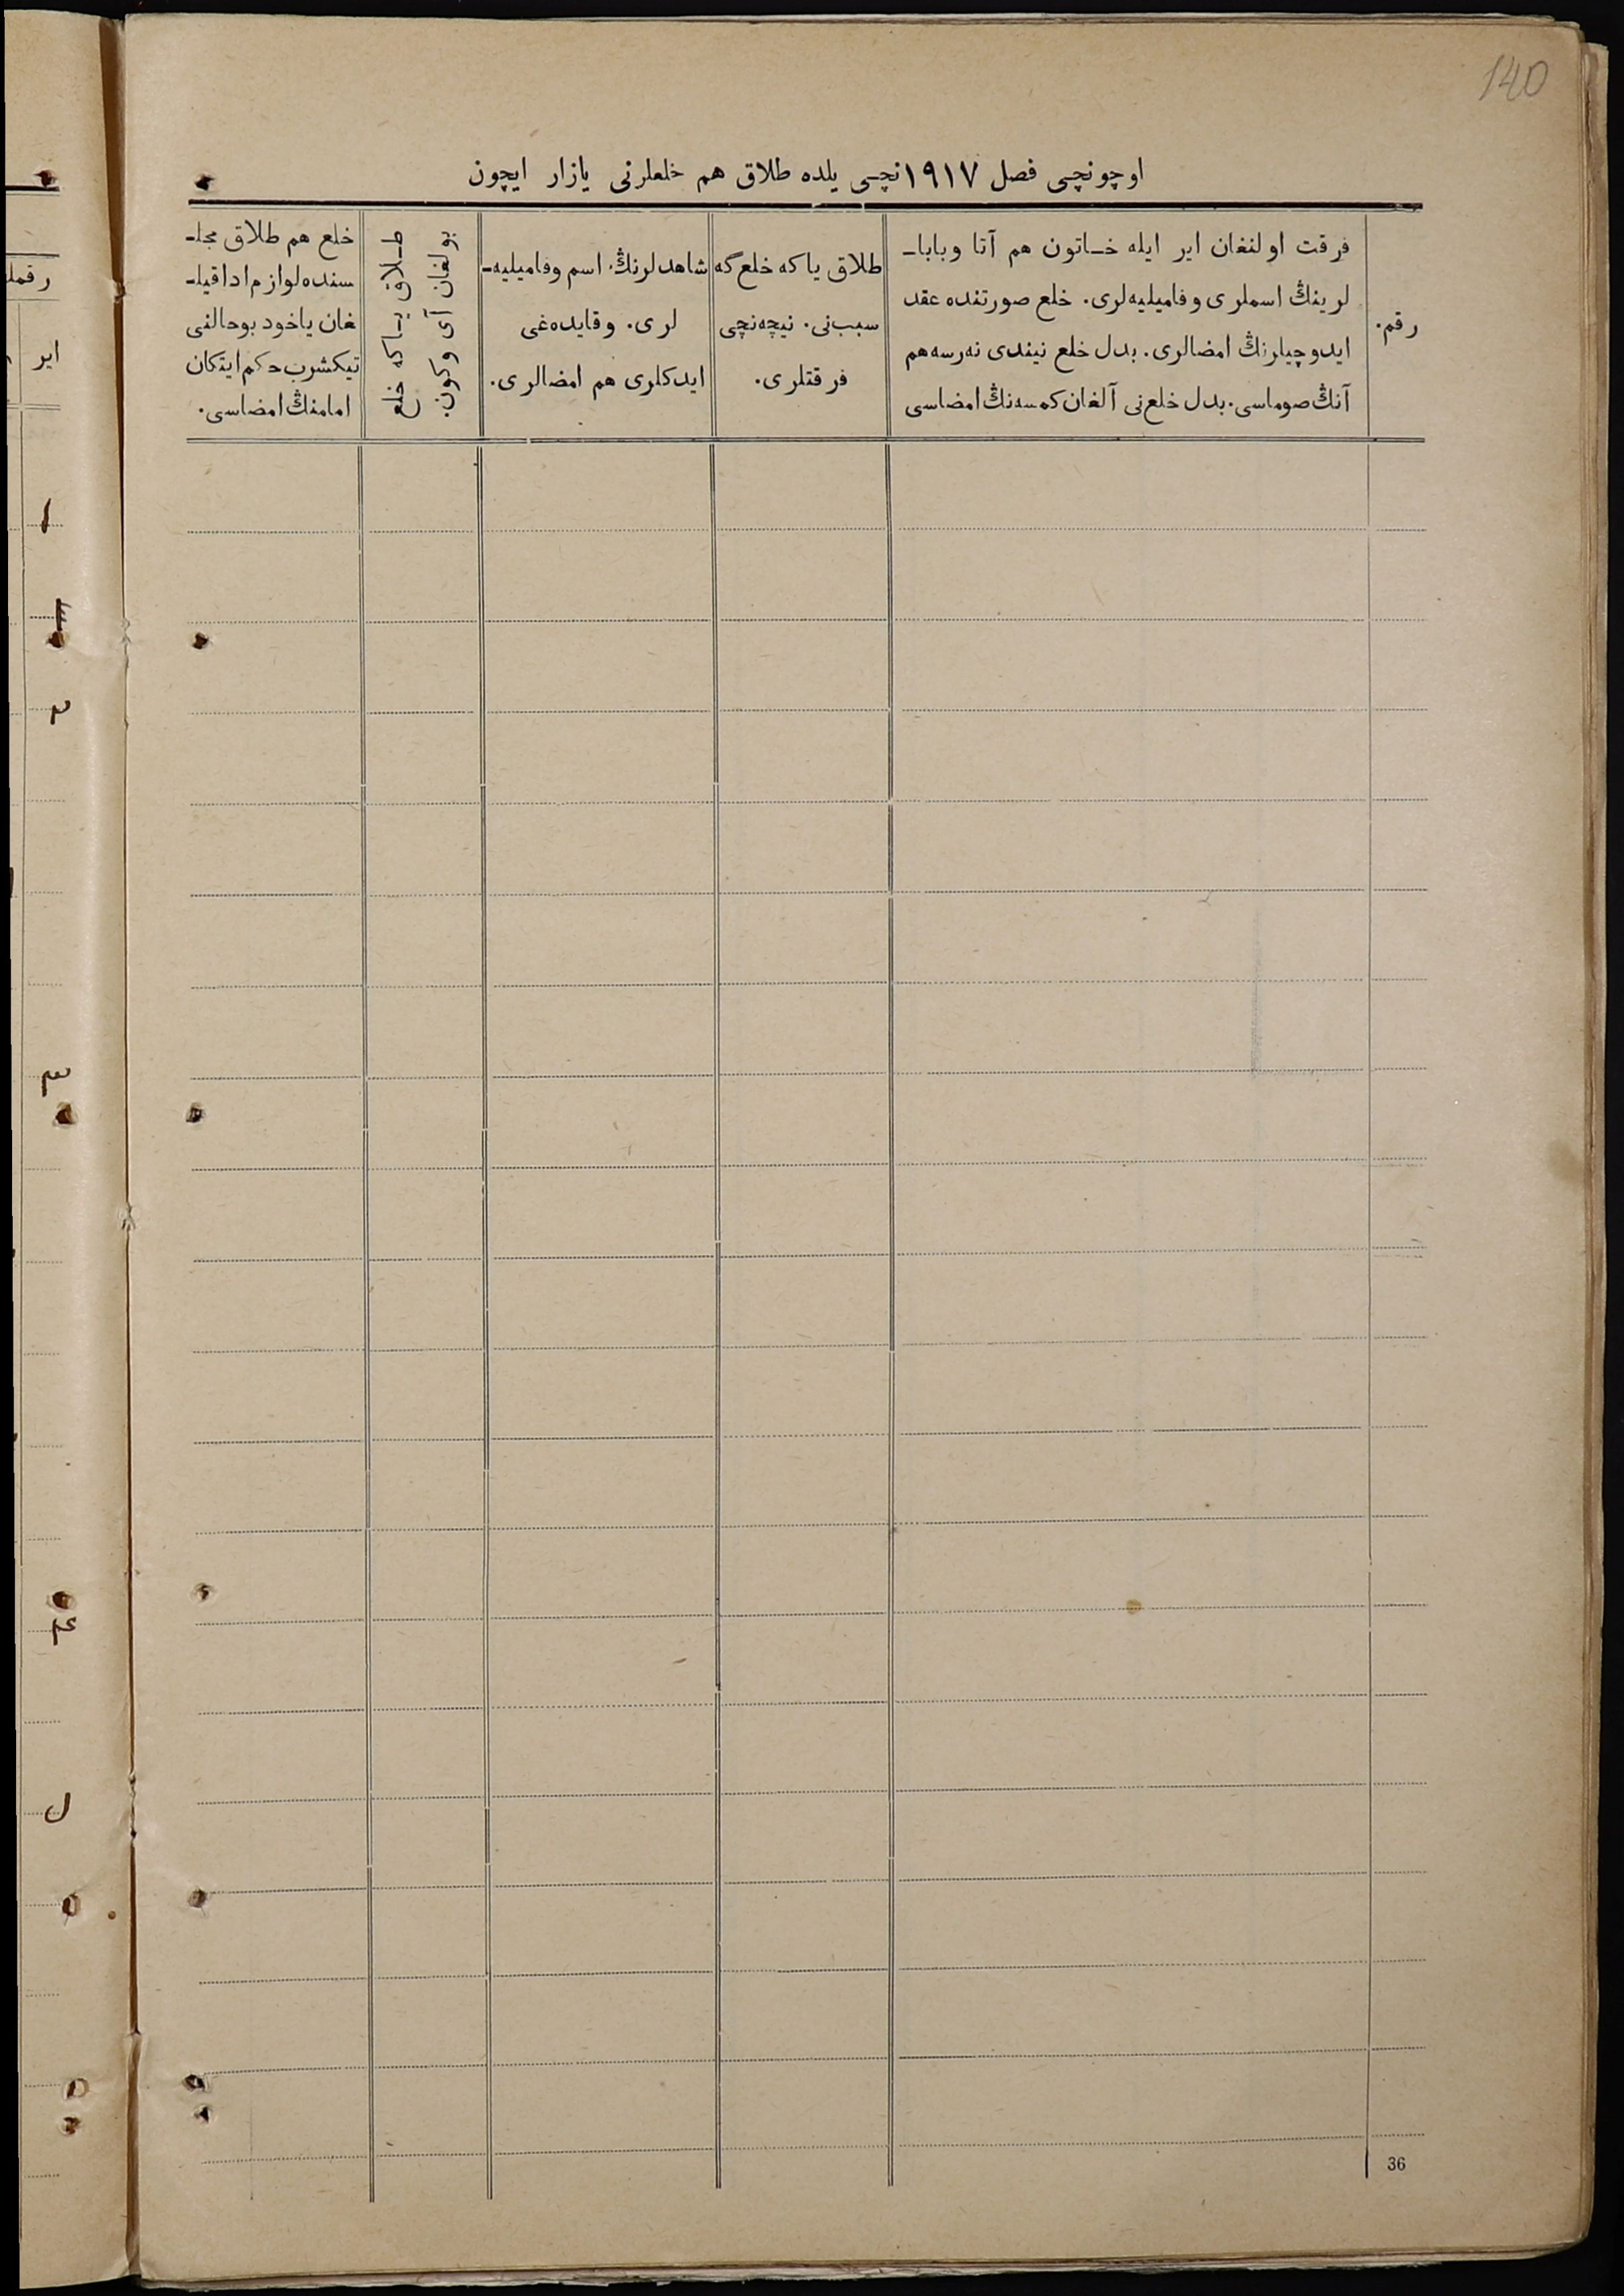 140
اوچونچی فصل ١٩١٧نچی یلده طلاق هم خلعلرنی یازار ایچون
رقم.
فرقت اولنغان ایر ایله خاتون هم آتا وبابا-
لرینڭ اسملری وفامیلیه‌لری. خلع صورتنده عقد
ایدوچیلرنڭ امضالری. بدل خلع نیندی نه‌رسه هم
آنڭ صوماسی. بدل خلع‌نی آلغان کمسه‌نڭ امضاسی
طلاق یاکه خلع گه
سبب‌نی. نیچه‌نچی
فرقتلری.
شاهدلرنڭ اسم وفامیلیه-
لری. وقایده‌غی
ایدکلری هم امضالری.
طلاق یاکه خلع
بولغان آی وکون.
خلع هم طلاق مجل-
سنده لوازم ادا قیل-
غان یاخود بوحالنی
تیکشرب حکم ایتکان
امامنڭ امضاسی.
36
رقمل
ایر
١
٢
٣
٤